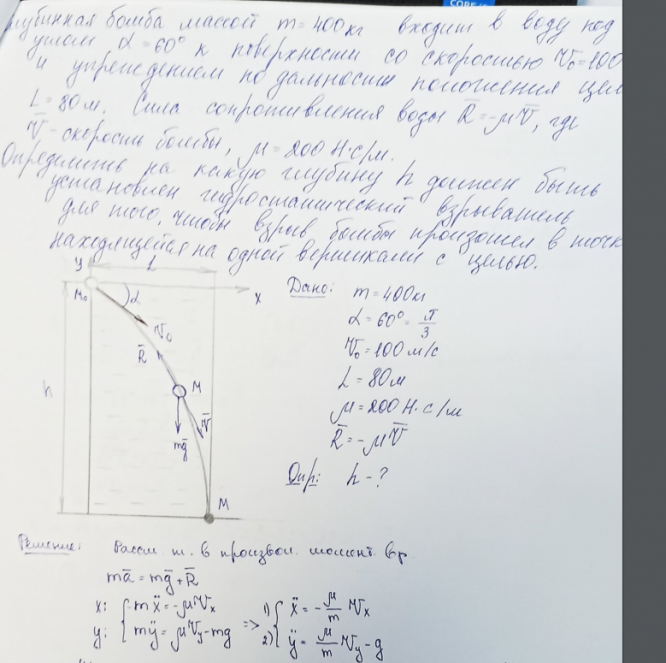 глубинная бомба массой m=400кг входит в воду под
углом α=60° к поверхности со скоростью V₀=100
и упреждением по дальности положения цел
L=80м. Сила сопротивления воды R̄=-μV̄, где
V̄-скорость бомбы, μ=200 Н·с/м.
Определить на какую глубину h должен быть
установлен гидростатический взрыватель
для того, чтобы взрыв бомбы произошел в точк
находящейся на одной вертикали с целью.
y L
M₀ α x
V₀
R̄
h M
V̄
mḡ
M
Дано: m=400кг
α=60°=π/3
V₀=100м/с
L=80м
μ=200 Н·с/м
R̄=-μV̄
Опр: h-?
Решение: Рассм т. в произвол. момент вр.
mā=mḡ+R̄
x: { mẍ=-μVₓ => 1) { ẍ=-μ/m Vₓ
y: { mÿ=μVy-mg 2) { ÿ=μ/m Vy-g